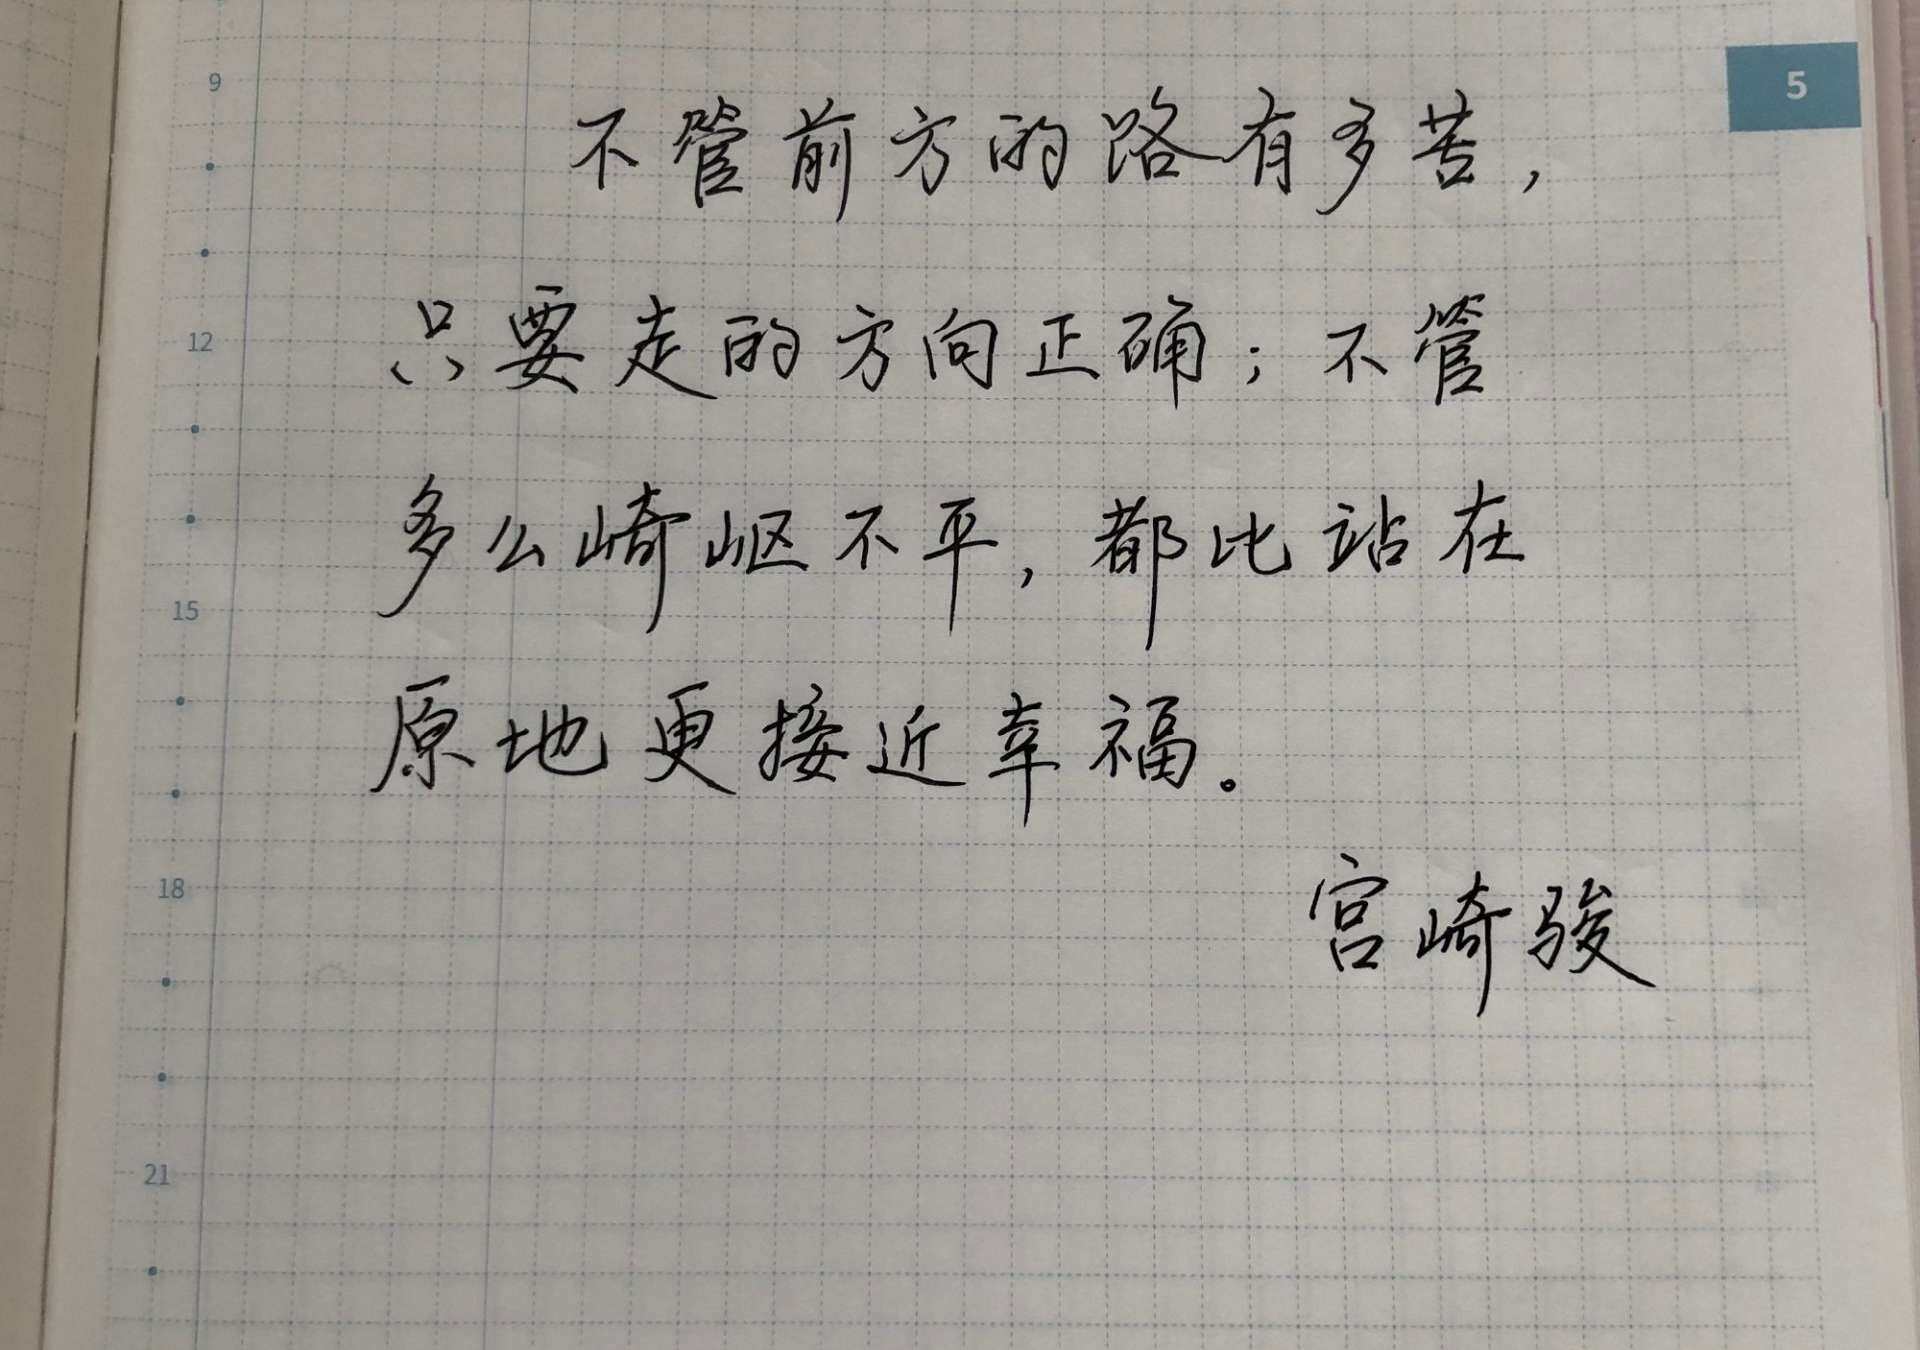 5
9
不管前方的路有多苦，
12
只要走的方向正确；不管
多么崎岖不平，都比站在
15
原地更接近幸福。
18
宫崎骏
21